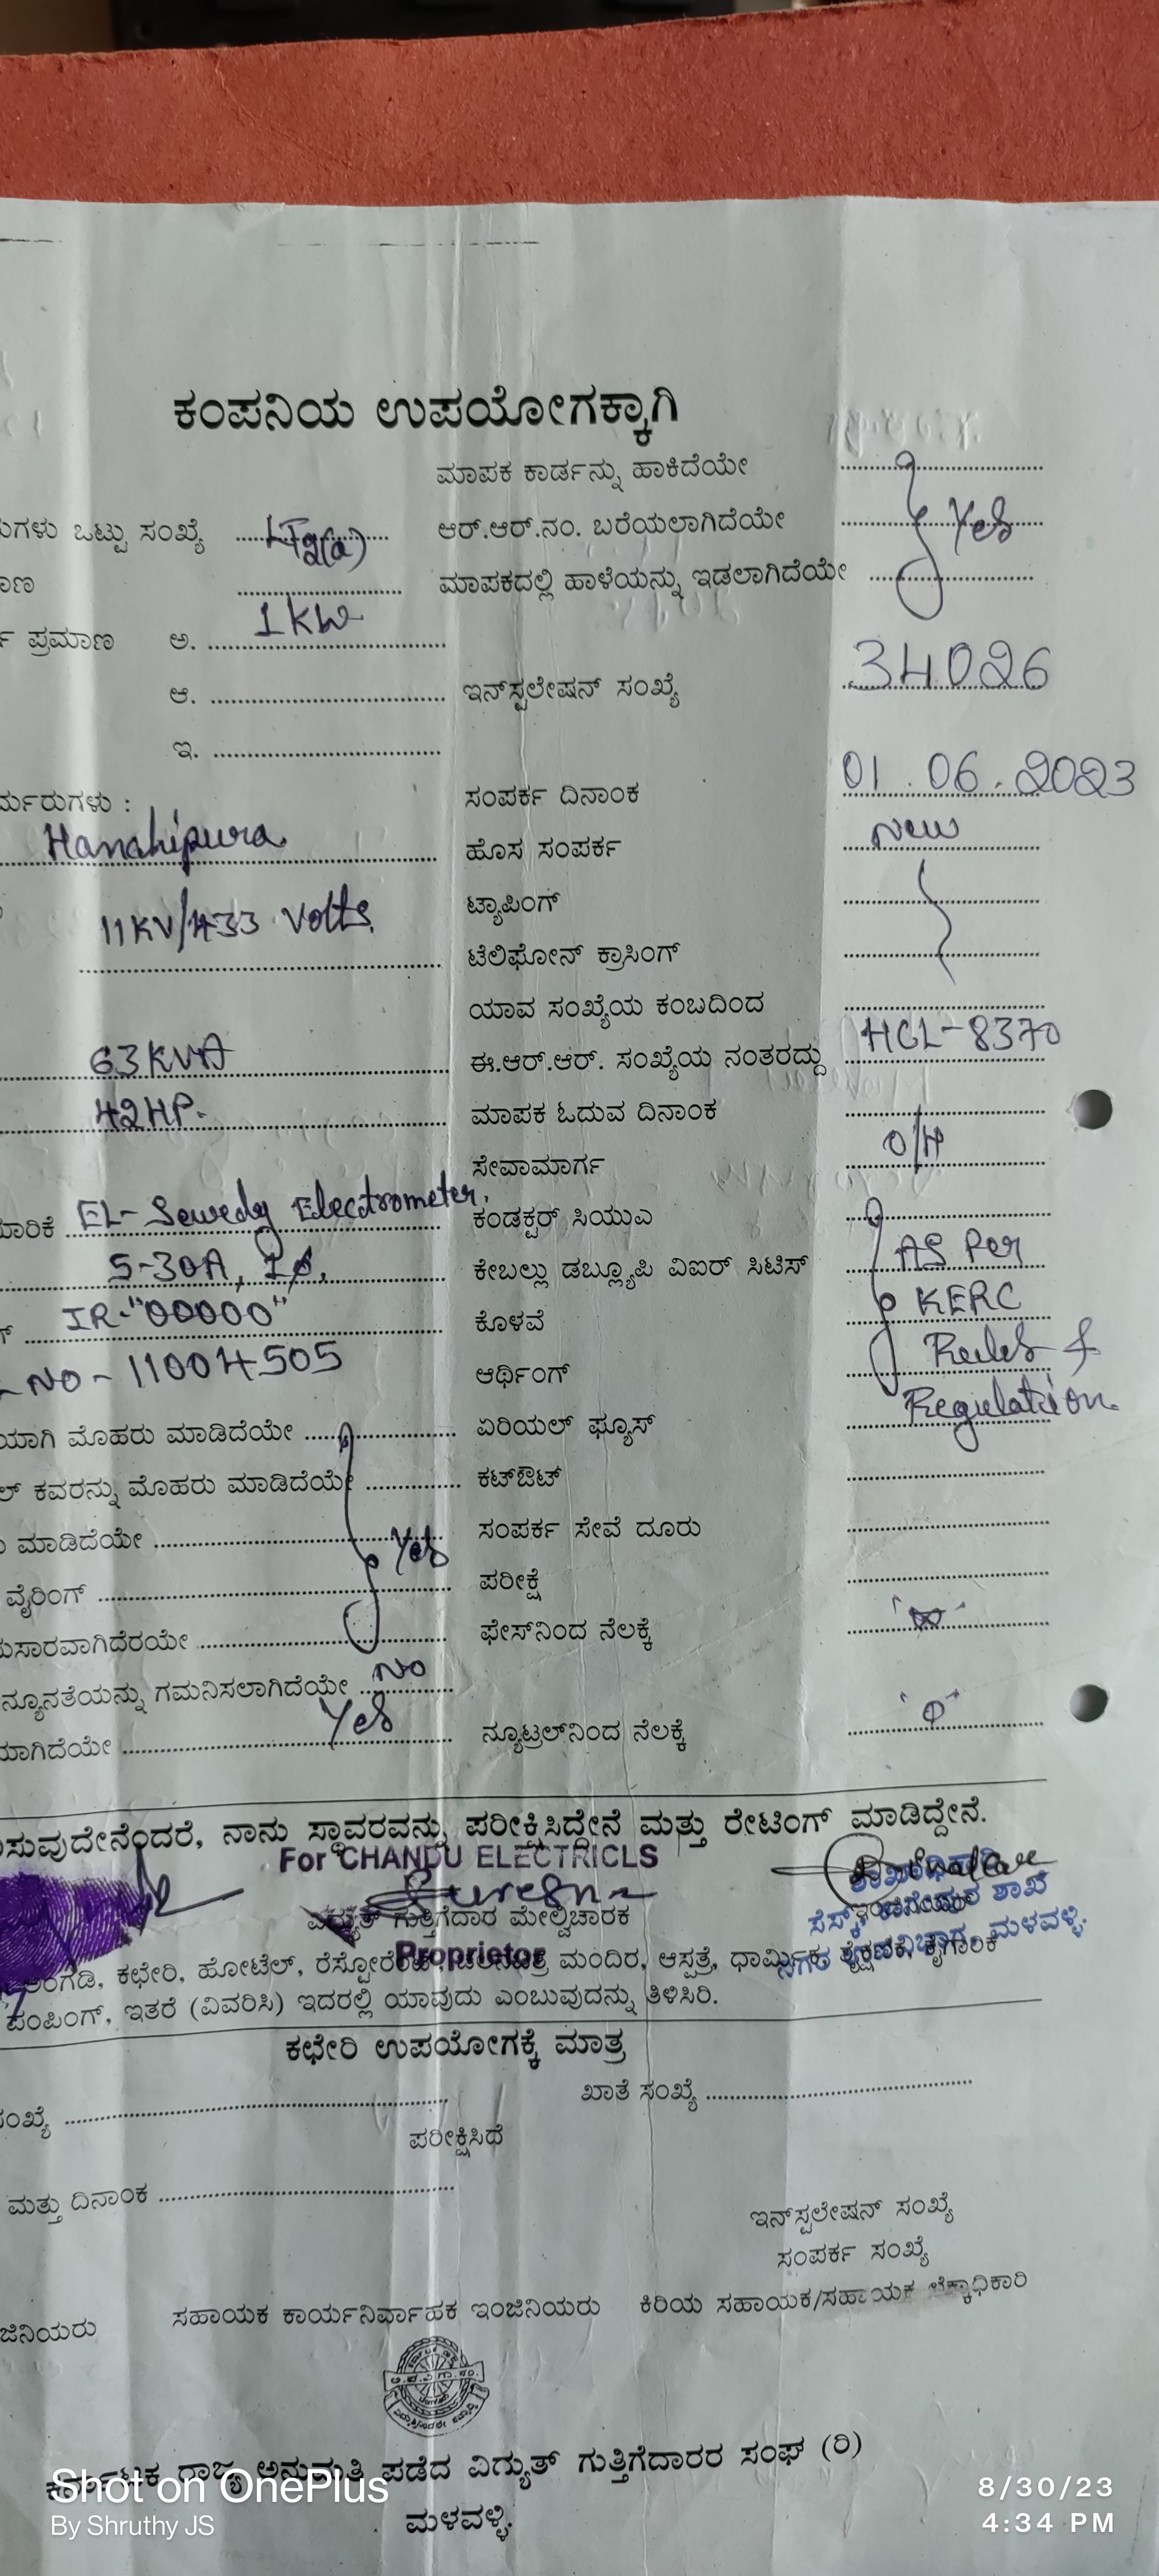 ಕಂಪನಿಯ ಉಪಯೋಗಕ್ಕಾಗಿ
ಮಾಪಕ ಕಾರ್ಡನ್ನು ಹಾಕಿದೆಯೇ
ಒಟ್ಟು ಸಂಖ್ಯೆ ಆರ್.ಆರ್.ನಂ. ಬರೆಯಲಾಗಿದೆಯೇ Yes
ಮಾಪಕದಲ್ಲಿ ಹಾಳೆಯನ್ನು ಇಡಲಾಗಿದೆಯೇ
ಪ್ರಮಾಣ ಅ. 1 KW
ಆ. ಇನ್‌ಸ್ಟಲೇಷನ್ ಸಂಖ್ಯೆ 34026
ಇ.
ರ್ಮರುಗಳು : ಸಂಪರ್ಕ ದಿನಾಂಕ 01.06.2023
Hanahipura ಹೊಸ ಸಂಪರ್ಕ New
11KV/433 Volts, ಟ್ಯಾಪಿಂಗ್
ಟೆಲಿಫೋನ್ ಕ್ರಾಸಿಂಗ್
ಯಾವ ಸಂಖ್ಯೆಯ ಕಂಬದಿಂದ
63KVA ಈ.ಆರ್.ಆರ್. ಸಂಖ್ಯೆಯ ನಂತರದ್ದು HCL-8370
42HP. ಮಾಪಕ ಓದುವ ದಿನಾಂಕ
ಸೇವಾಮಾರ್ಗ O/H
EL-Sewedy Electrometer, ಕಂಡಕ್ಟರ್ ಸಿಯುಎ
5-30A, 1φ, ಕೇಬಲ್ಲು ಡಬ್ಲ್ಯೂಪಿ ವಿಐರ್ ಸಿಟಿಸ್ AS Per
IR-"00000" ಕೊಳವೆ KERC
NO-11004505 ಆರ್ಥಿಂಗ್ Rules &
ಯಾಗಿ ಮೊಹರು ಮಾಡಿದೆಯೇ ಏರಿಯಲ್ ಫ್ಯೂಸ್ Regulation.
ಲ್ ಕವರನ್ನು ಮೊಹರು ಮಾಡಿದೆಯೇ ಕಟ್‌ಔಟ್
ಮಾಡಿದೆಯೇ Yes ಸಂಪರ್ಕ ಸೇವೆ ದೂರು
ವೈರಿಂಗ್ ಪರೀಕ್ಷೆ
ಸಾರವಾಗಿದೆರಯೇ ಫೇಸ್‌ನಿಂದ ನೆಲಕ್ಕೆ
ನ್ಯೂನತೆಯನ್ನು ಗಮನಿಸಲಾಗಿದೆಯೇ No
ಮಾಗಿದೆಯೇ Yes ನ್ಯೂಟ್ರಲ್‌ನಿಂದ ನೆಲಕ್ಕೆ
ಸುವುದೇನೆಂದರೆ, ನಾನು ಸ್ಥಾವರವನ್ನು ಪರೀಕ್ಷಿಸಿದ್ದೇನೆ ಮತ್ತು ರೇಟಿಂಗ್ ಮಾಡಿದ್ದೇನೆ.
For CHANDU ELECTRICLS
Suresh
ಗುತ್ತಿಗೆದಾರ ಮೇಲ್ವಿಚಾರಕ
ಶಾಖೆ
ಮಳವಳ್ಳಿ.
Proprietor
ಅಂಗಡಿ, ಕಛೇರಿ, ಹೋಟೆಲ್, ಮಂದಿರ, ಆಸ್ಪತ್ರೆ, ಧಾರ್ಮಿಕ, ಶೈಕ್ಷಣಿಕ, ಕೈಗಾರಿಕೆ
ಪಂಪಿಂಗ್, ಇತರೆ (ವಿವರಿಸಿ) ಇದರಲ್ಲಿ ಯಾವುದು ಎಂಬುವುದನ್ನು ತಿಳಿಸಿರಿ.
ಕಛೇರಿ ಉಪಯೋಗಕ್ಕೆ ಮಾತ್ರ
ಸಂಖ್ಯೆ ಖಾತೆ ಸಂಖ್ಯೆ
ಪರೀಕ್ಷಿಸಿದೆ
ಮತ್ತು ದಿನಾಂಕ
ಇನ್‌ಸ್ಟಲೇಷನ್ ಸಂಖ್ಯೆ
ಸಂಪರ್ಕ ಸಂಖ್ಯೆ
ಜಿನಿಯರು ಸಹಾಯಕ ಕಾರ್ಯನಿರ್ವಾಹಕ ಇಂಜಿನಿಯರು ಕಿರಿಯ ಸಹಾಯಕ/ಸಹಾಯಕ ಲೆಕ್ಕಾಧಿಕಾರಿ
ಕರ್ನಾಟಕ ರಾಜ್ಯ ಅನುಮತಿ ಪಡೆದ ವಿದ್ಯುತ್ ಗುತ್ತಿಗೆದಾರರ ಸಂಘ (ರಿ)
ಮಳವಳ್ಳಿ.
Shot on OnePlus
By Shruthy JS
8/30/23
4:34 PM